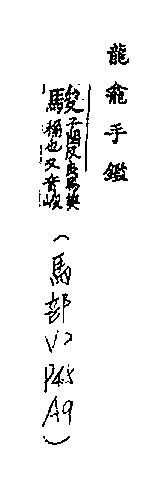 龍龕手鑑
駿子閏反良馬美
稱也又音峻
(馬部V2P45A9)